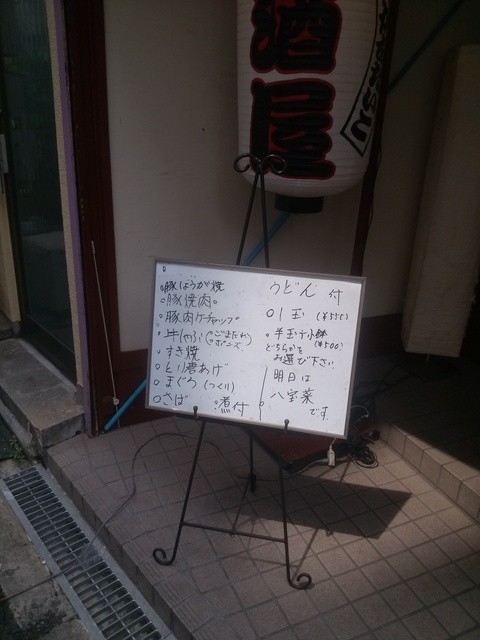 酒屋
豚しょうが焼
豚焼肉
豚肉ケチャップ
牛しゃぶ(ごまだれ
ポンズ)
すき焼
とり唐あげ
まぐろ(つくり)
さば 煮付
うどん付
1玉(¥550)
半玉+小鉢
(¥500)
どちらかを
お選び下さい
明日は
八宝菜
です